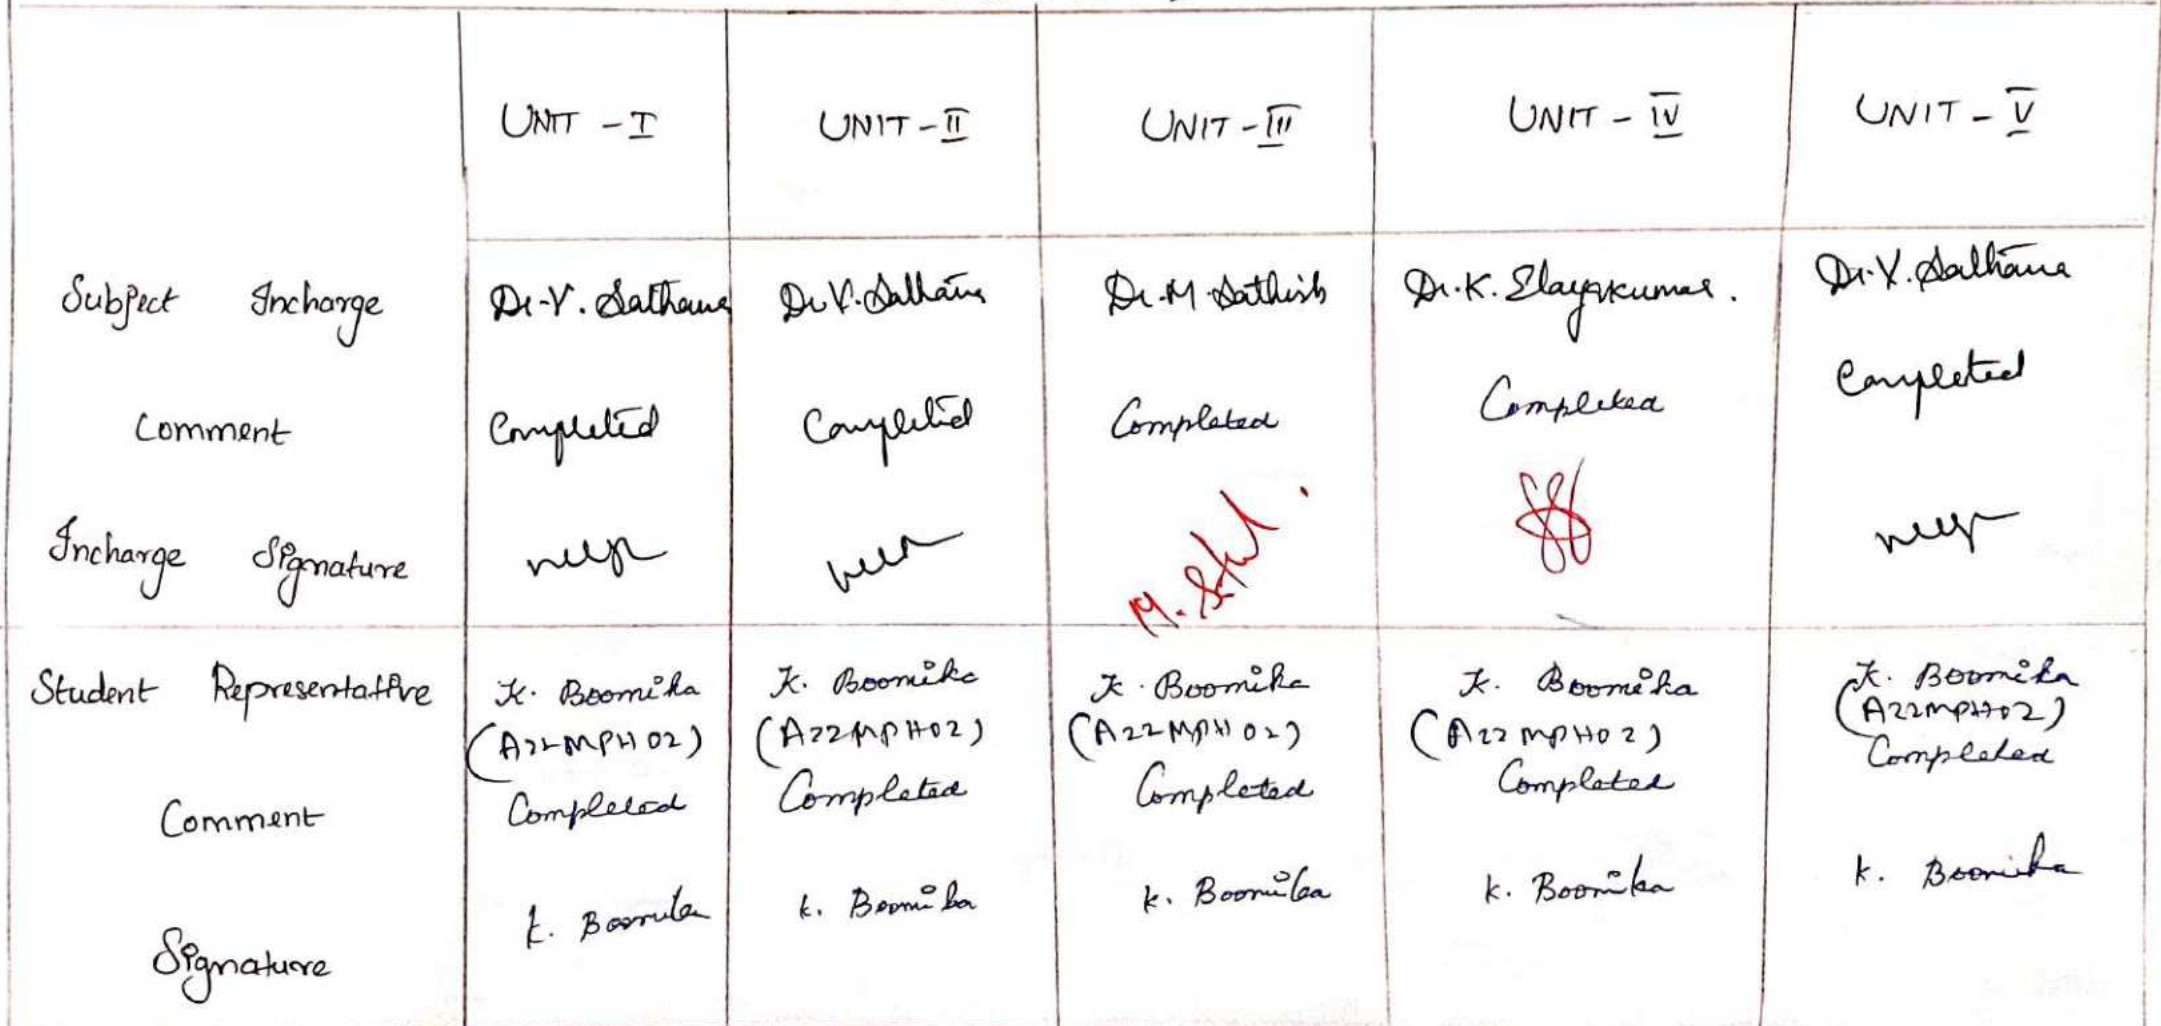 UNIT - I UNIT - II UNIT - III UNIT - IV UNIT - V
Subject Incharge Dr. V. Sathana Dr. V. Sathana Dr. M. Sathish Dr. K. Elayakumar. Dr. V. Sathana
Comment Completed Completed Completed Completed Completed
Incharge Signature
Student Representative K. Boomika K. Boomika K. Boomika K. Boomika K. Boomika
(A22MPH02) (A22MPH02) (A22MPH02) (A22MPH02) (A22MPH02)
Comment Completed Completed Completed Completed Completed
Signature K. Boomika K. Boomika K. Boomika K. Boomika K. Boomika